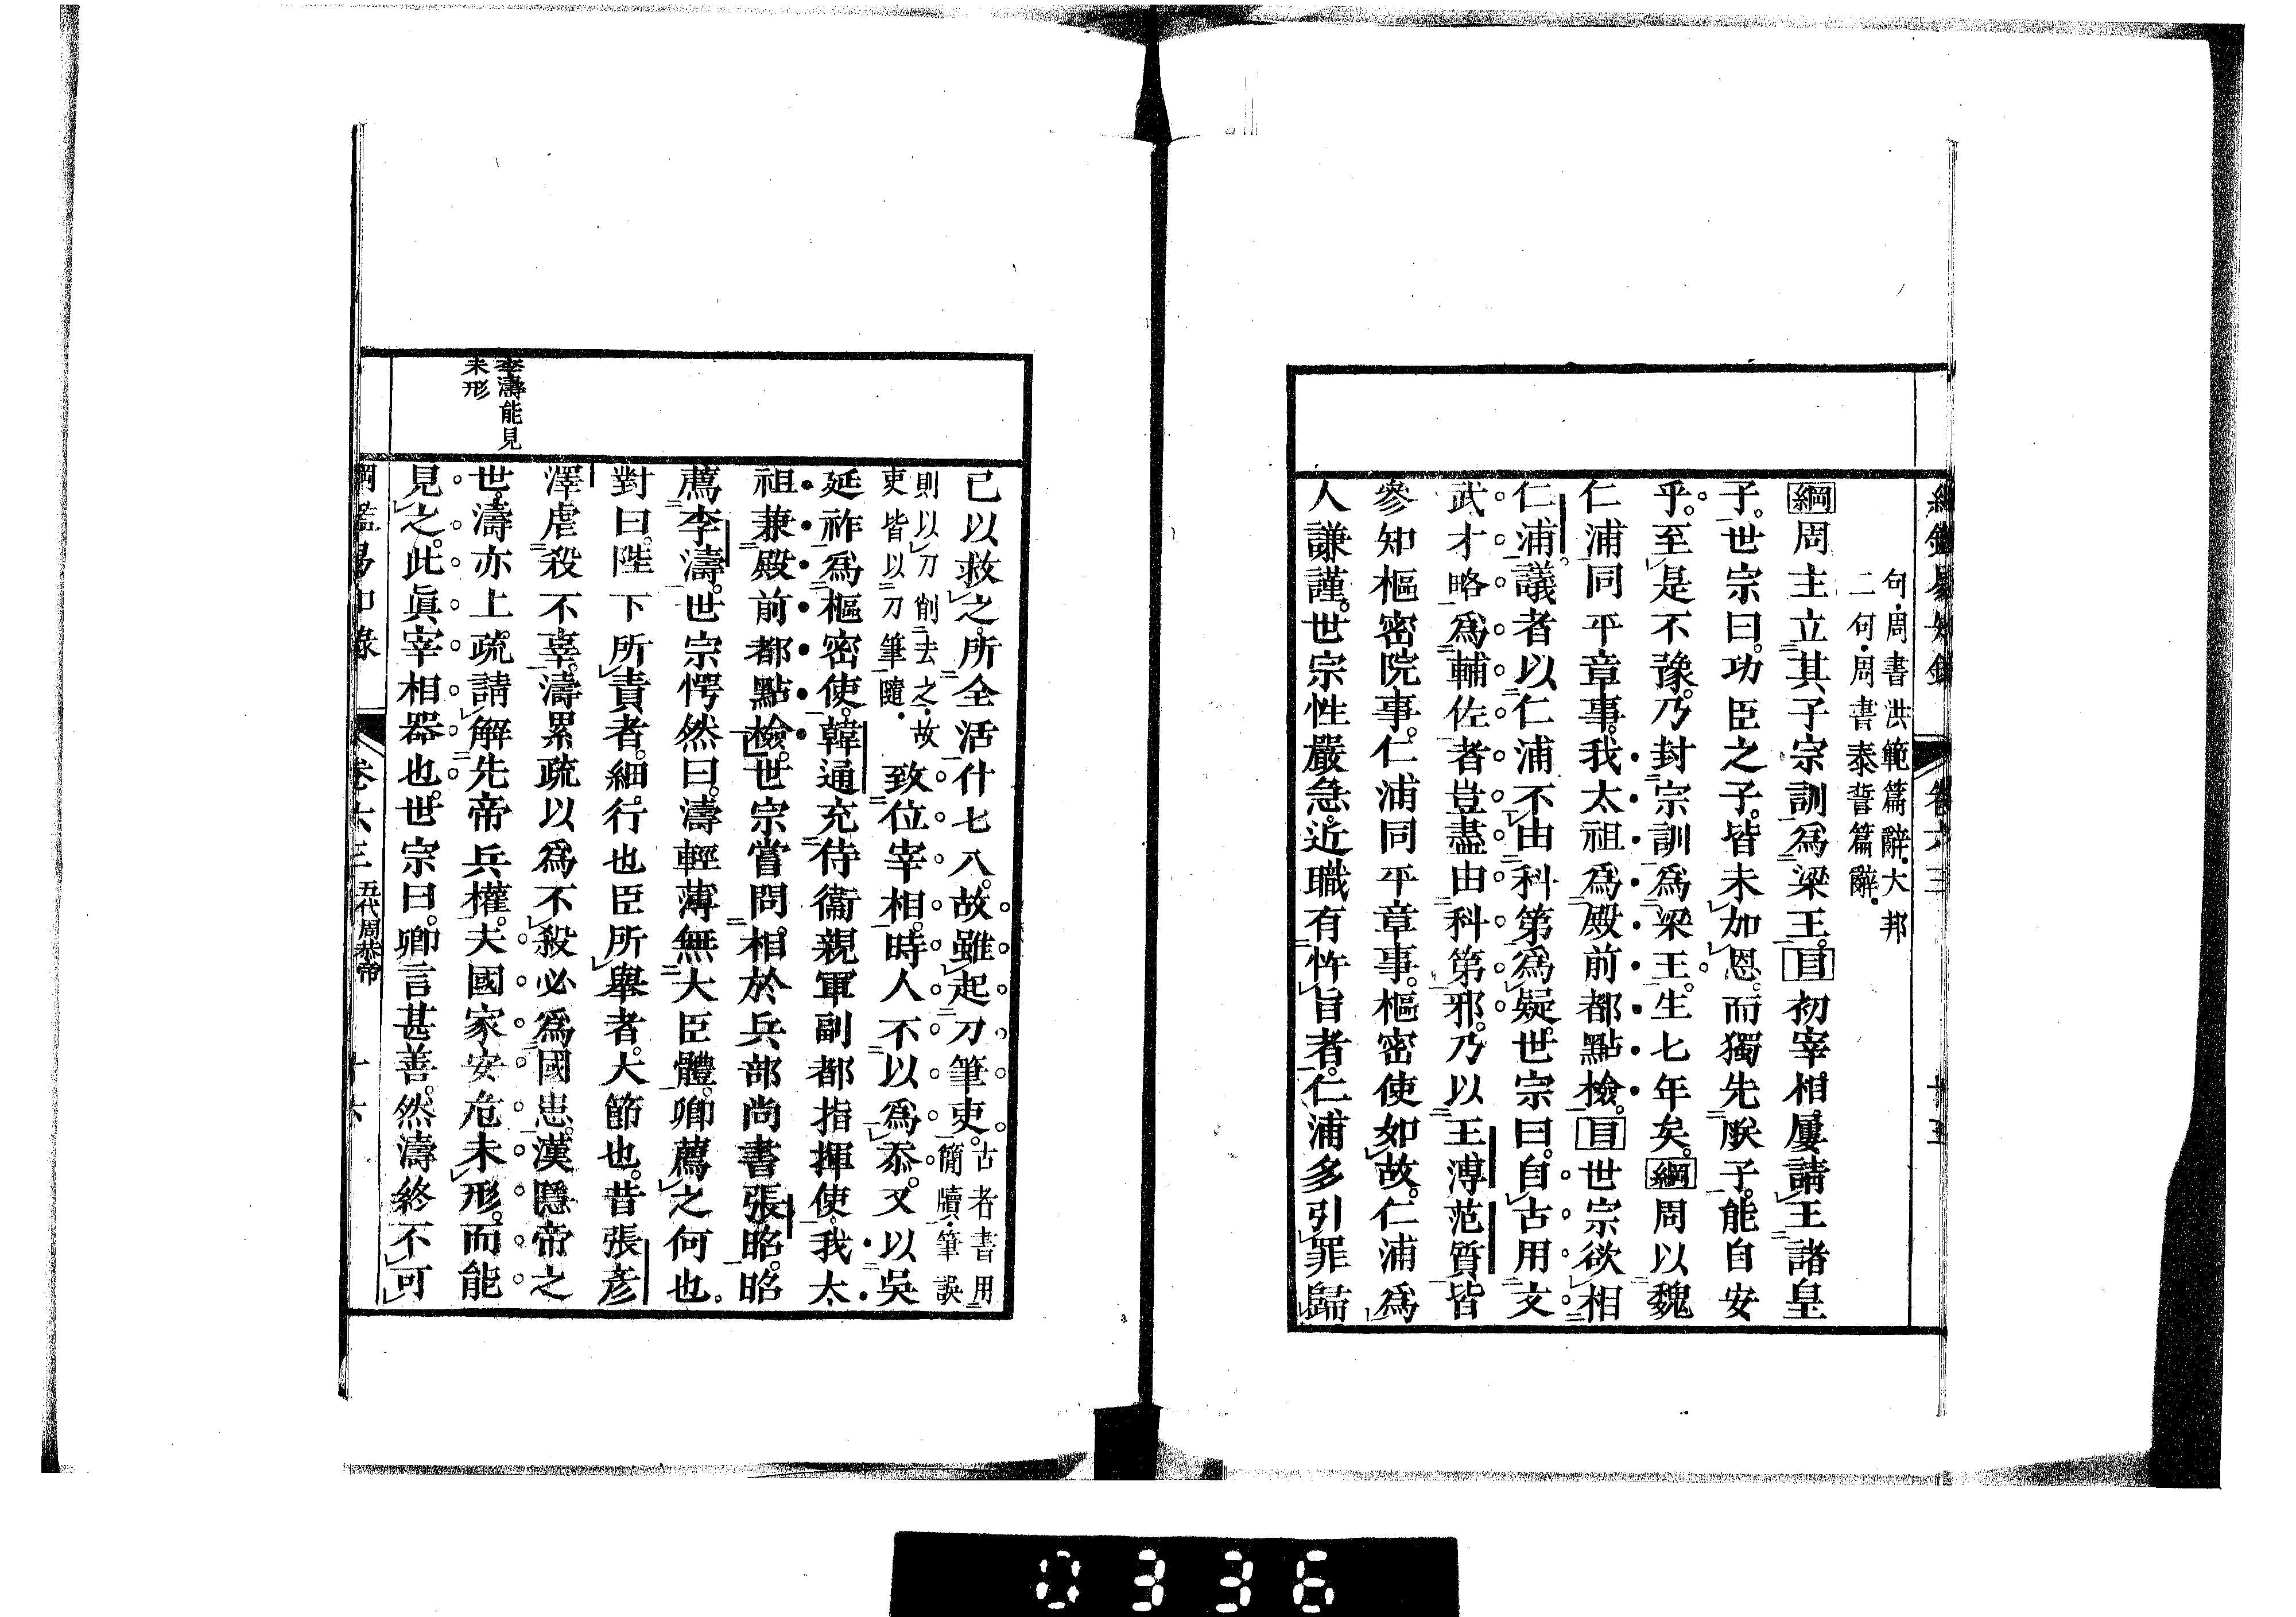 綱鑑易知錄 卷六三 十五
句・周書洪範篇辭・大邦
二句・周書泰誓篇辭・
綱周主立其子宗訓爲梁王。目初宰相屢請王諸皇
子。世宗曰。功臣之子。皆未加恩。而獨先朕子。能自安
乎。至是不豫。乃封宗訓爲梁王。生七年矣。綱周以魏
仁浦同平章事。我太祖爲殿前都點檢。目世宗欲相
仁浦。議者以仁浦不由科第爲疑。世宗曰。自古用文
武才略爲輔佐者。豈盡由科第邪。乃以王溥范質皆
參知樞密院事。仁浦同平章事。樞密使如故。仁浦爲
人謙謹。世宗性嚴急。近職有忤旨者。仁浦多引罪歸
已以救之。所全活什七八。故雖起刀筆吏。古者書用
簡牘・筆誤
則以刀削去之・故
吏皆以刀筆隨・致位宰相。時人不以爲忝。又以吳
延祚爲樞密使。韓通充侍衞親軍副都指揮使。我太
祖兼殿前都點檢。世宗嘗問。相於兵部尚書張昭。昭
薦李濤。世宗愕然曰。濤輕薄無大臣體。卿薦之何也。
對曰。陛下所責者。細行也臣所舉者。大節也。昔張彥
澤虐殺不辜。濤累疏以爲不殺必爲國患。漢隱帝之
世。濤亦上疏。請解先帝兵權。夫國家安危未形。而能
見之。此眞宰相器也。世宗曰。卿言甚善。然濤終不可
李濤能見
未形
綱鑑易知錄 卷六三 五代周恭帝 十六
0336